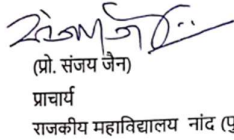 (प्रो. संजय जैन)
प्राचार्य
राजकीय महाविद्यालय नांद (पु